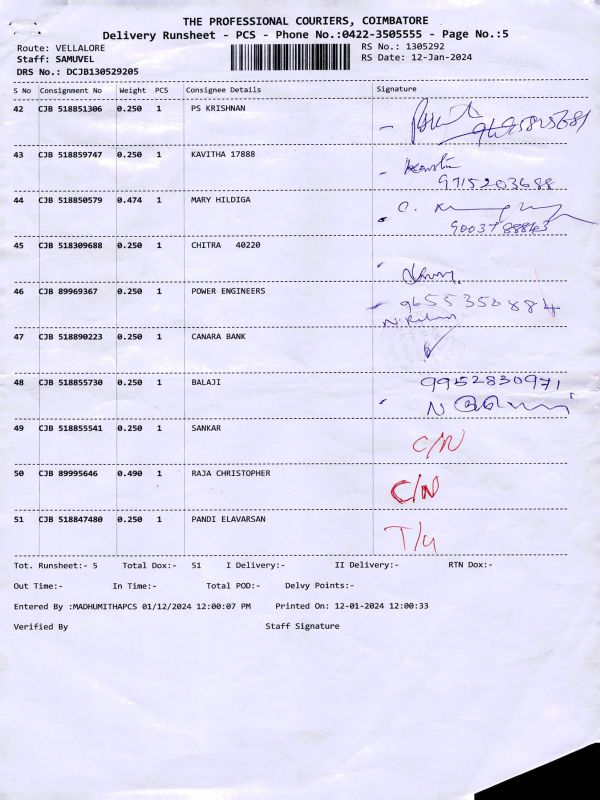 THE PROFESSIONAL COURIERS, COIMBATORE
Delivery Runsheet - PCS - Phone No.:0422-3505555 - Page No.:5
Route: VELLALORE RS No.: 1305292
Staff: SAMUVEL RS Date: 12-Jan-2024
DRS No.: DCJB130529205
S No Consignment No Weight PCS Consignee Details Signature
42 CJB 518851306 0.250 1 PS KRISHNAN
43 CJB 518859747 0.250 1 KAVITHA 17888
9715203688
44 CJB 518850579 0.474 1 MARY HILDIGA
45 CJB 518309688 0.250 1 CHITRA 40220
46 CJB 89969367 0.250 1 POWER ENGINEERS
9655350884
47 CJB 518890223 0.250 1 CANARA BANK
48 CJB 518855730 0.250 1 BALAJI 9952830971
49 CJB 518855541 0.250 1 SANKAR C/N
50 CJB 89995646 0.490 1 RAJA CHRISTOPHER C/N
51 CJB 518847480 0.250 1 PANDI ELAVARSAN
Tot. Runsheet:- 5 Total Dox:- 51 I Delivery:- II Delivery:- RTN Dox:-
Out Time:- In Time:- Total POD:- Delvy Points:-
Entered By :MADHUMITHAPCS 01/12/2024 12:00:07 PM Printed On: 12-01-2024 12:00:33
Verified By Staff Signature